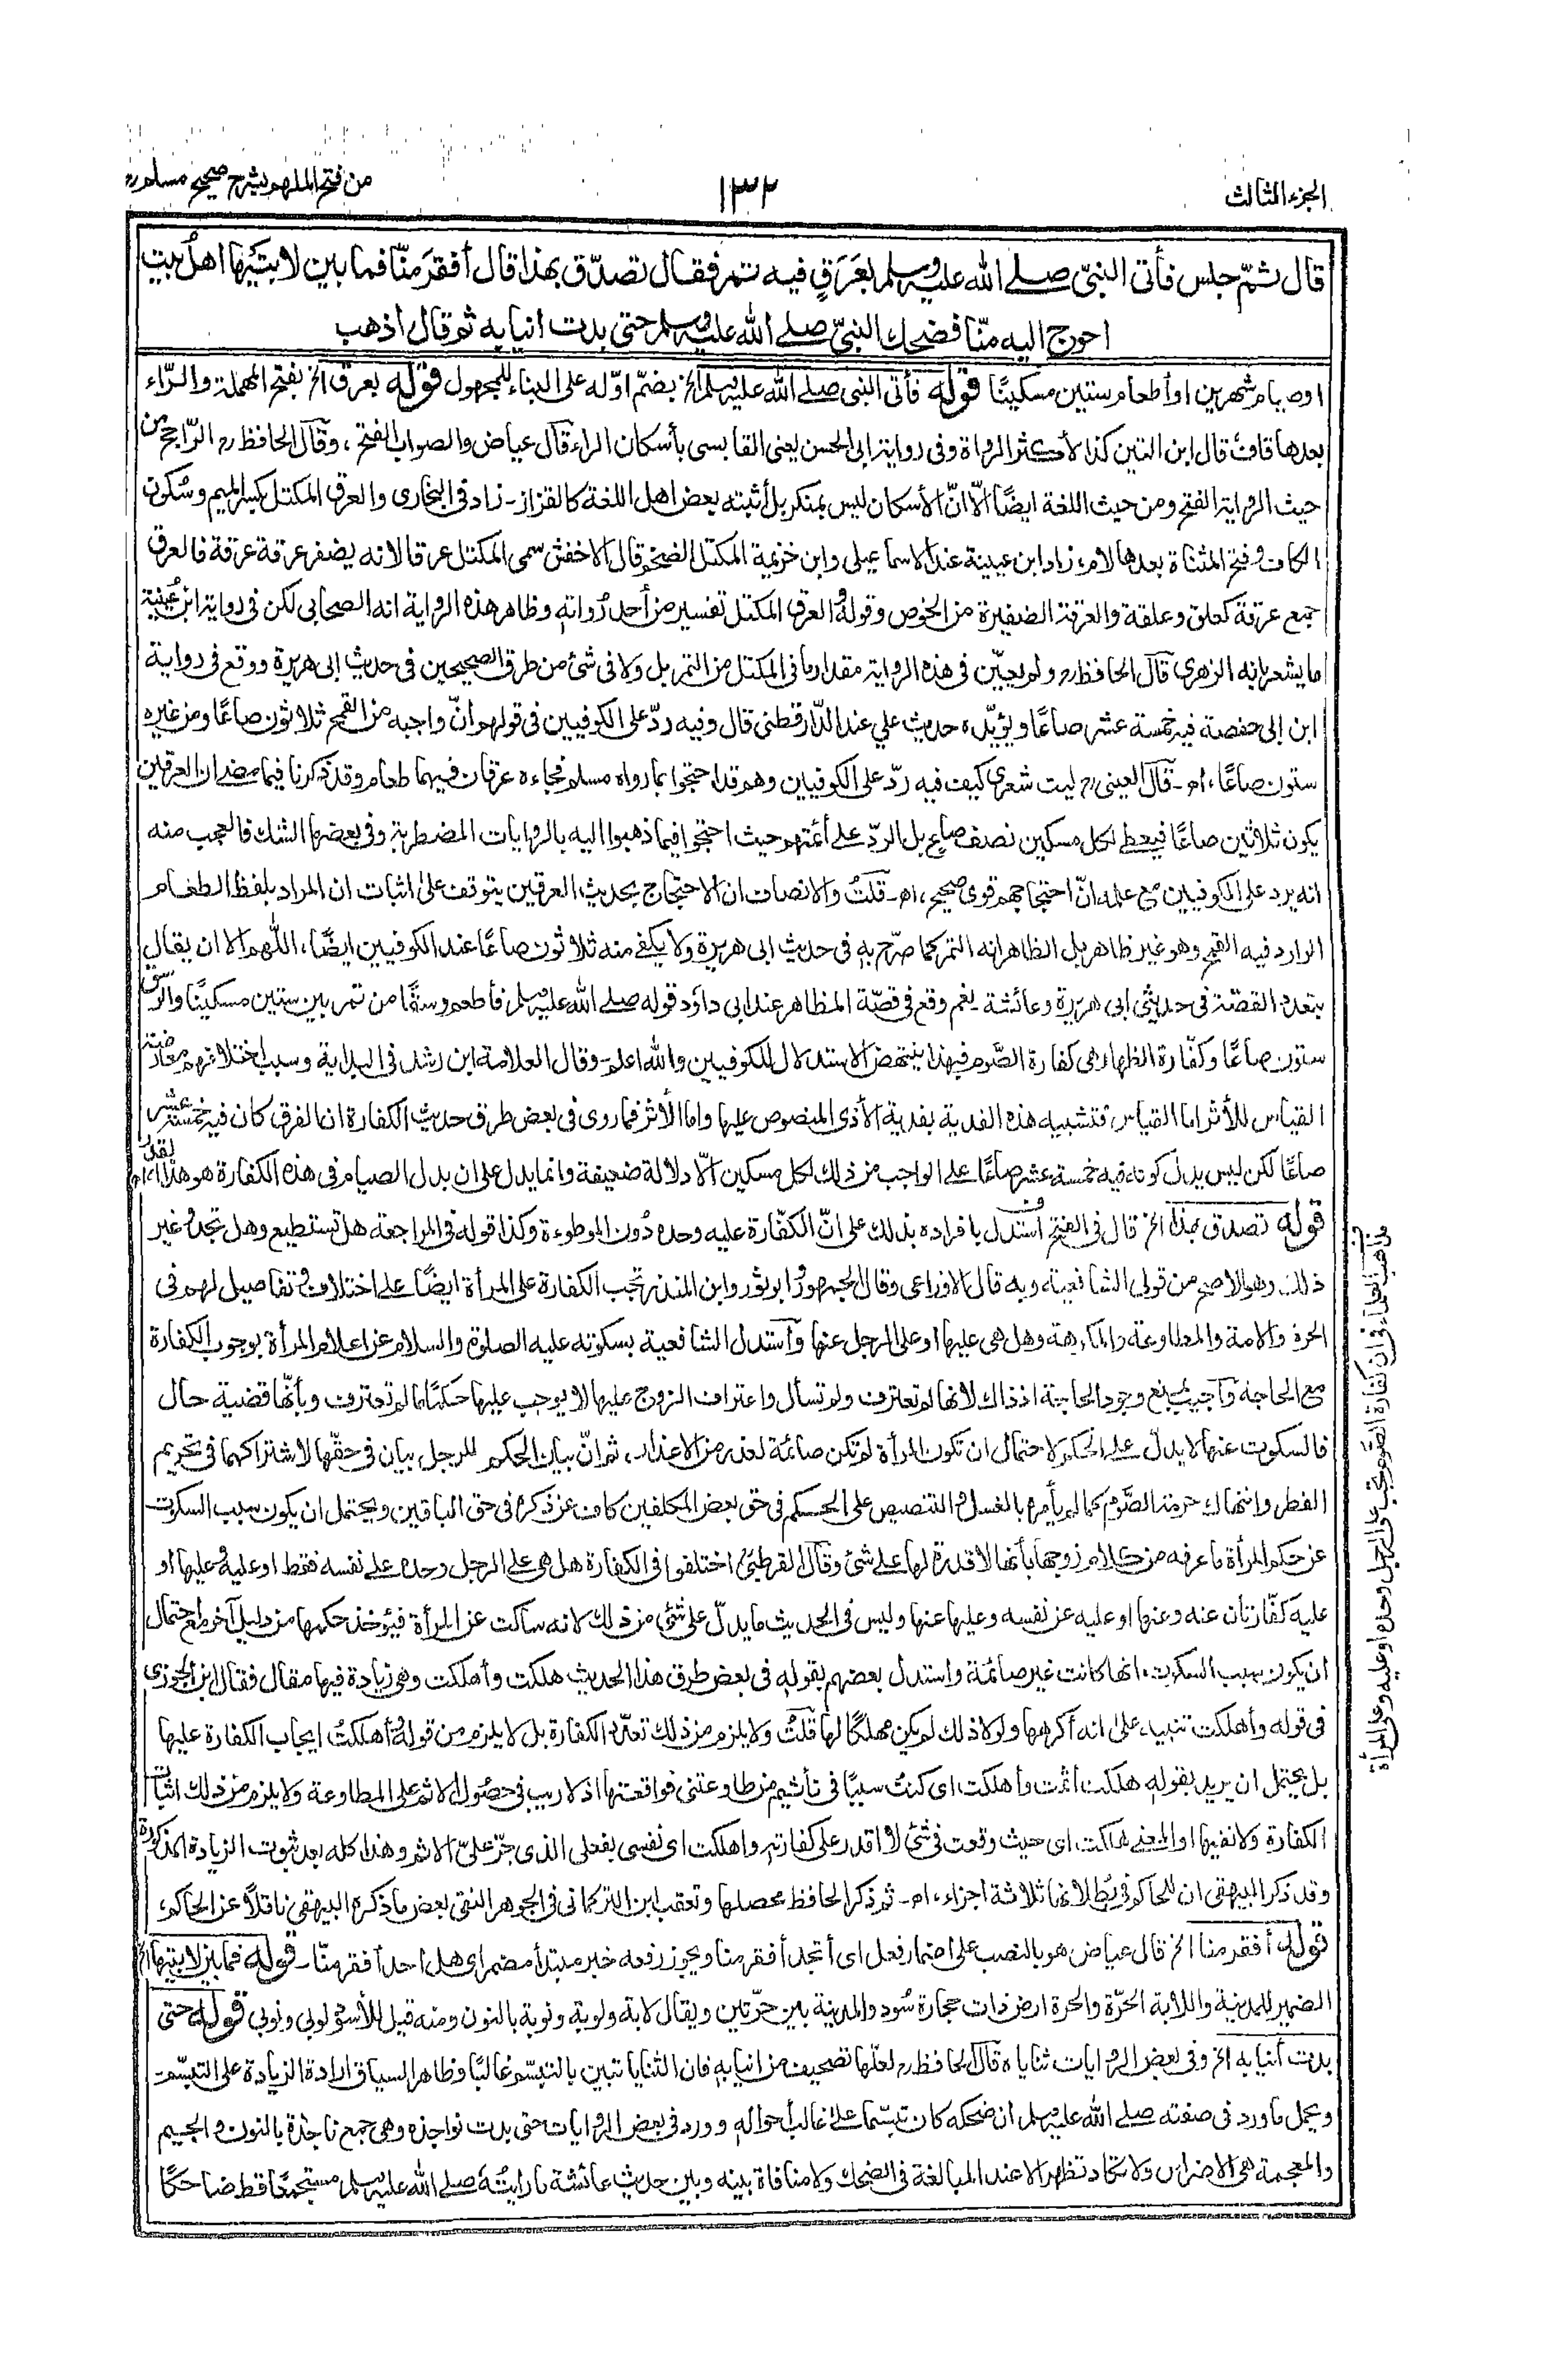 الجزء الثالث
١٣٢
من فتح الملهم بشرح صحيح مسلم
قال ثمّ جلس فأتى النبىّ صلے الله عليه وسلم بعَرَقٍ فيه تمر فقال تصدّق بهذا قال أفقرَ منّا فما بين لابتَيْها اهلُ بيت
احوج اليه منّا فضحك النبىّ صلے الله عليه وسلم حتى بدت انيابه ثم قال اذهب
اوصيام شهرين او أطعام ستين مسكينًا قوله فأتى النبى صلے الله عليه وسلم الخ بضمّ اوّله على البناء للمجهول قوله بعرق الخ بفتح المهملة والرّاء
بعدها قاف قال ابن التين كذا لأكثر الرواة وفى رواية ابى الحسن يعنى القابسى بأسكان الراء قال عياض والصواب الفتح، وقال الحافظ رح الرّاجح من
حيث الرواية الفتح ومن حيث اللغة ايضًا الّا انّ الأسكان ليس بمنكر بل أثبته بعض اهل اللغة كالقزاز - زاد فى البخارى والعرق المكتل بكسر الميم وسكون
الكاف وفتح المثناة بعدها لام، زاد ابن عيينة عند الاسماعيلى وابن خزيمة المكتل الضخم قال الاخفش سمى المكتل عرقا لانه يضفر عرقة عرقة فالعرق
جمع عرقة كعلق وعلقة والعرقة الضفيرة من الخوص وقوله والعرق المكتل تفسير من أحد رُواته وظاهر هذه الرواية انه الصحابى لكن فى رواية ابن عُيينة
ما يشعر بانه الزهرى قال الحافظ رح ولم يعيّن فى هذه الرواية مقدار ما فى المكتل من التمر بل ولا فى شئ من طرق الصحيحين فى حديث ابى هريرة ووقع فى رواية
ابن ابى حفصة فيه خمسة عشر صاعًا ويؤيّده حديث علي عند الدّارقطنى قال وفيه ردّ على الكوفيين فى قولهم انّ واجبه من القمح ثلاثون صاعًا ومن غيره
ستون صاعًا، اه - قال العينى رح ليت شعرى كيف فيه ردّ على الكوفيين وهم قد احتجوا بما رواه مسلم فجاءه عرقان فيهما طعام وقد ذكرنا فيما مضى ان العرقين
يكون ثلاثين صاعًا فيعطے لكل مسكين نصف صاع بل الردّ علے أئمتهم حيث احتجوا فيما ذهبوا اليه بالروايات المضطربة وفى بعضها الشك فالعجب منه
انه يرد على الكوفيين مع علمه انّ احتجاجهم قوى صحيح، اه - قلتُ والانصاف ان الاحتجاج بحديث العرقين يتوقف على اثبات ان المراد بلفظ الطعام
الوارد فيه القمح وهو غير ظاهر بل الظاهر انه التمر كما صرّح به فى حديث ابى هريرة ولا يكفے منه ثلاثون صاعًا عند الكوفيين ايضًا، اللّهم الا ان يقال
بتعدد القصّة فى حديثى ابى هريرة وعائشة - نعم وقع فى قصّة المظاهر عند ابى داؤد قوله صلے الله عليه وسلم فأطعم وسقًا من تمر بين ستين مسكينًا والوسق
ستون صاعًا وكفّارة الظهار هى كفارة الصّوم فبهذا ينتهض الاستدلال للكوفيين والله اعلم - وقال العلامة ابن رشد فى البداية وسبب اختلافهم معارضة
القياس للأثر اما القياس فتشبيه هذه الفدية بفدية الأذى المنصوص عليها واما الأثر فما روى فى بعض طرق حديث الكفارة ان الفرق كان فيه خمسة عشر
صاعًا لكن ليس يدل كونه فيه خمسة عشر صاعًا على الواجب من ذلك لكل مسكين الّا دلالة ضعيفة وانما يدل على ان بدل الصيام فى هذه الكفارة هو هذا القدر اه
قوله تصدق بهذا الخ قال فى الفتح استدل بافراده بذلك على انّ الكفّارة عليه وحده دُون الموطوءة وكذا قوله فى المراجعة هل تستطيع وهل تجد وغير
ذلك وهو الاصح من قولى الشافعية وبه قال الاوزاعى وقال الجمهور وابو ثور وابن المنذر تجب الكفارة على المرأة ايضًا على اختلاف وتفاصيل لهم فى
الحرة والامة والمطاوعة والمكرهة وهل هى عليها او على الرجل عنها واستدل الشافعية بسكوته عليه الصلوة والسلام عن اعلام المرأة بوجوب الكفارة
مع الحاجة وأجيب بمنع وجود الحاجة اذ ذاك لانها لم تعترف ولم تسأل واعتراف الزوج عليها لا يوجب عليها حكمًا ما لم تعترف وبأنّها قضية حال
فالسكوت عنها لا يدلّ على الحكم لاحتمال ان تكون المرأة لم تكن صائمة لعذر من الاعذار، ثم انّ بيان الحكم للرجل بيان فى حقّها لاشتراكهما فى تحريم
الفطر وانتهاك حرمة الصّوم كما لم يأمره بالغسل والتنصيص على الحكم فى حق بعض المكلفين كاف عن ذكره فى حق الباقين ويحتمل ان يكون سبب السكوت
عن حكم المرأة ما عرفه من كلام زوجها بأنها لا قدرة لها على شئ وقال القرطبى اختلفوا فى الكفارة هل هى على الرجل وحده على نفسه فقط او عليه وعليها او
عليه كفّارتان عنه وعنها او عليه عن نفسه وعليها عنها وليس فى الحديث ما يدلّ على شئ من ذلك لانه ساكت عن المرأة فيؤخذ حكمها من دليل آخر مع احتمال
ان يكون سبب السكوت انها كانت غير صائمة واستدل بعضهم بقوله فى بعض طرق هذا الحديث هلكت وأهلكت وهى زيادة فيها مقال فقال ابن الجوزى
فى قوله وأهلكت تنبيه على انه أكرهها ولولا ذلك لم يكن مهلكًا لها قلتُ ولا يلزم من ذلك تعدّد الكفارة بل لا يلزم من قوله وأهلكتُ ايجاب الكفارة عليها
بل يحتمل ان يريد بقوله هلكت أثمت وأهلكت اى كنتُ سببًا فى تأثيم من طاوعتنى فواقعتها اذ لا ريب فى حصُول الاثم على المطاوعة ولا يلزم من ذلك اثبات
الكفارة ولا نفيها او المعنے هلكت اى حيث وقعت فى شئ لا اقدر على كفارته واهلكت اى نفسى بفعلى الذى جرّ علىّ الاثم وهذا كله بعد ثبوت الزيادة المذكورة
وقد ذكر البيهقى ان للحاكم فى بُطلانها ثلاثة اجزاء، اه - ثم ذكر الحافظ محصلها وتعقب ابن التركمانى فى الجوهر النقى بعض ما ذكره البيهقى ناقلًا عن الحاكم،
قوله أفقر منا الخ قال عياض هو بالنصب على اضمار فعل اى أتجد أفقر منا ويجوز رفعه خبر مبتدأ مضمر اى هل احد أفقر منّا - قوله فما بين لابتيها الخ
الضمير للمدينة واللابة الحرّة والحرة ارض ذات حجارة سُود والمدينة بين حرّتين ويقال لابة ولوبة ونوبة بالنون ومنه قيل للأسود لوبى ونوبى قوله حتى
بدت أنيابه الخ وفى بعض الروايات ثناياه قال الحافظ رح لعلّها تصحيف من انيابه فان الثنايا تبين بالتبسّم غالبًا وظاهر السياق ارادة الزيادة على التبسّم
ويحمل ما ورد فى صفته صلے الله عليه وسلم ان ضحكه كان تبسّما على غالب أحواله وورد فى بعض الروايات حتى بدت نواجذه وهى جمع ناجذة بالنون والجيم
والمعجمة هى الاضراس ولا تكاد تظهر الا عند المبالغة فى الضحك ولا منافاة بينه وبين حديث عائشة ما رايتُه صلے الله عليه وسلم مستجمعًا قط ضاحكًا
مذاهب العلماء فى ان كفارة الصوم تجب على الرجل وحده او عليه وعلى المرأة